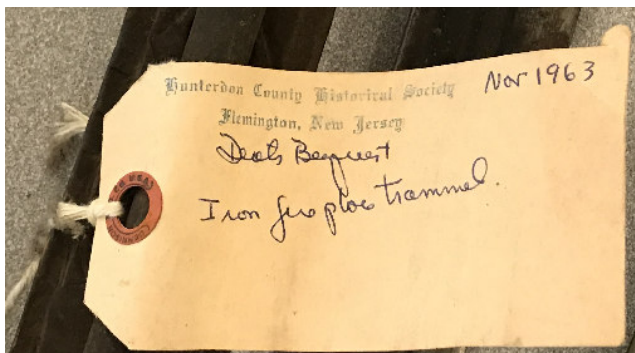 Nov 1963
Hunterdon County Historical Society
Flemington, New Jersey
Deats Bequest
Iron fireplace trammel.